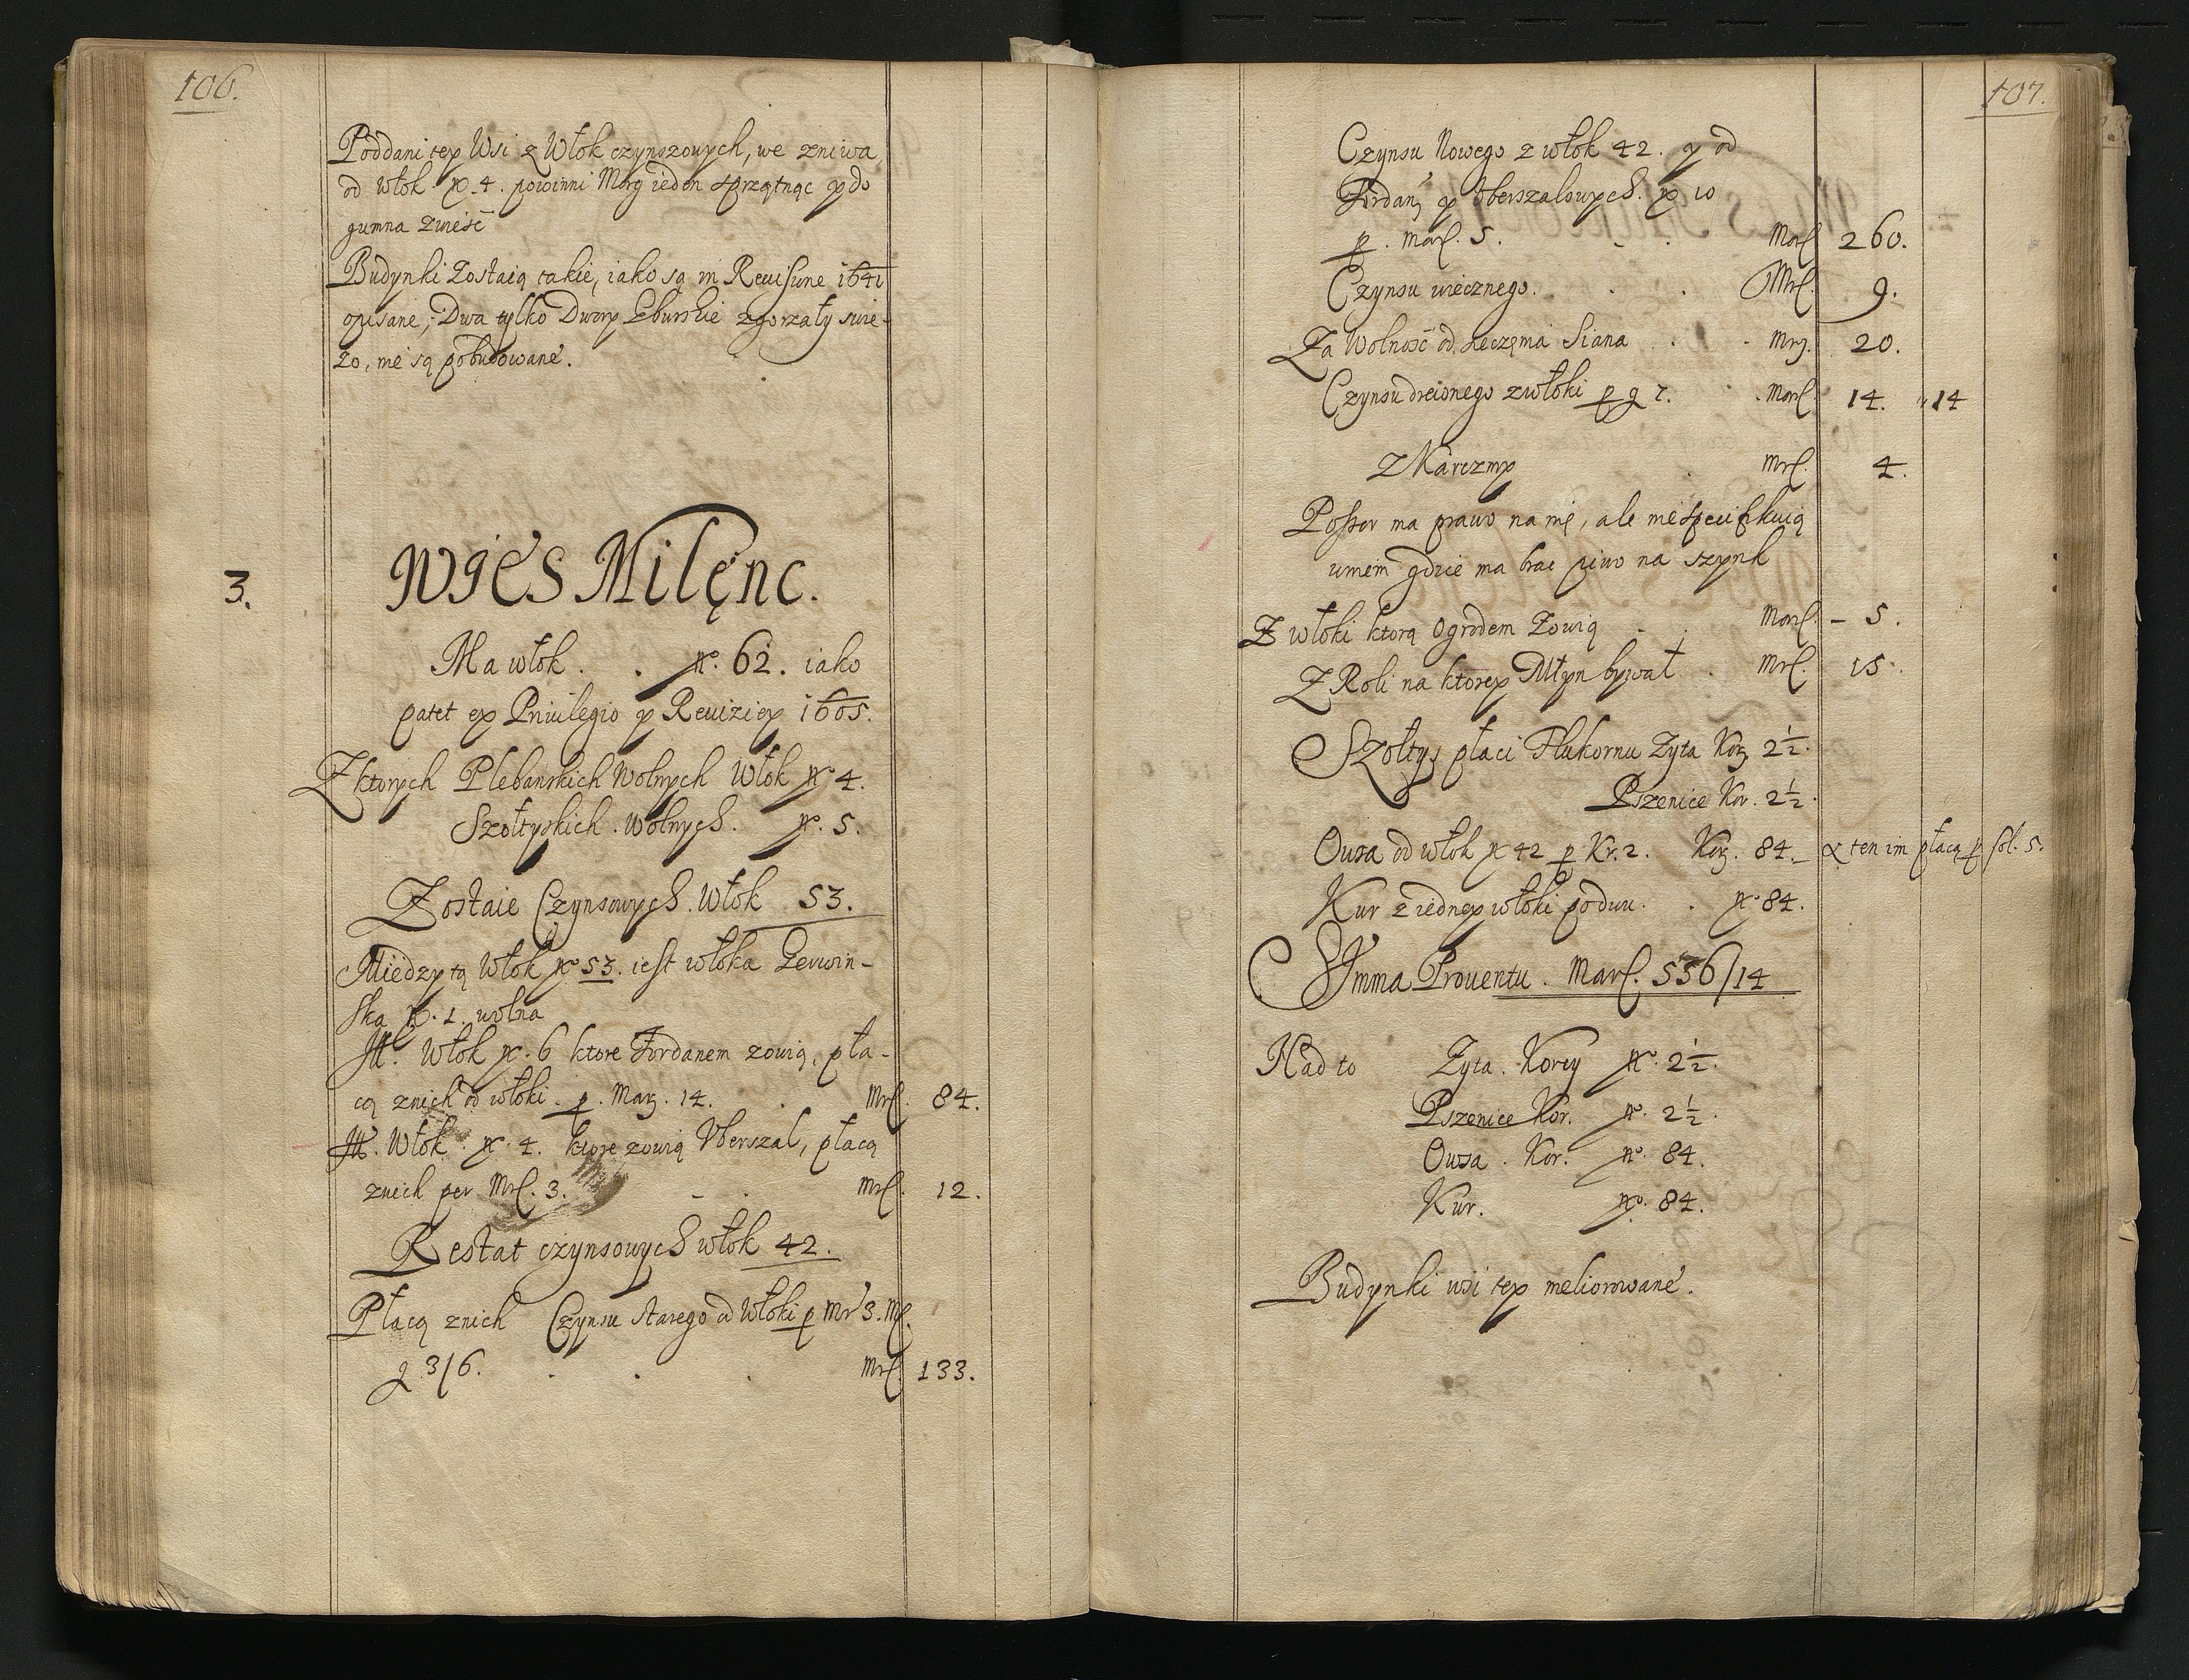 106.
Poddani tey Wsi z Włok czynszowych, we zniwa,
od włok No. 4. powinni Morg ieden sprzątnąc y do
gumna zwieść
Budynki Zostaią takie, iako są in Reuisione 1641
opisane, Dwa tylko Dwory Eburskie zgorzały swie-
zo, nie są pobudowane.
3. WIES Milęnc.
Ma włok . . No. 62. iako
patet ex Priuilegio y Reuiziey 1605.
Z ktorych Plebanskich Wolnych Włok No 4.
Szołtyskich Wolnych. No. 5.
Zostaie Czynsowych. Włok 53.
Miedzy tą Włok No 53. iest włoka Lerwin-
ska No. 1. wolna
It. Włok No. 6 ktore Fordanem zowią, pła-
cą znich od włoki. p. Marg. 14. . Mrc. 84.
It. Włok. No. 4. ktore zowią Vberszal, płacą
znich per Mrc. 3. - . Mrc. 12.
Restat czynsowych włok 42.
Płacą znich Czynsu starego od Włoki p Mr 3.
g 3/6. . . . Mrc. 133.
107.
Czynsu Nowego z włok 42. y od
Fordany y Vberszalowych. No 10
p. Marc. 5. - . Marc 260.
Czynsu wiecznego. . . Mrc. 9.
Za Wolność od sieczęnia Siana . . Mrg. 20.
Czynsu drcionego z włoki p g 7. . Marc. 14. 14
Z Karczmy . Mrc. 4.
Possor ma prawo na nię, ale nie specifikuią
umem gdzie ma brac piwo na szynk
Z włoki ktorą Ogrodem Zowią - . Marc. - 5.
Z Roli na ktorey Młyn bywał . Mrc. 15.
Szołtys płaci Płukornu Zyta Korz 2½.
Pszenice Kor. 2½.
Owsa od włok No 42 p Kr. 2. Korz. 84. - ten im płacą p sol. 5.
Kur z iedney włoki po dwu. . No 84.
Summa Prouentu. Marc. 556/14
Nad to Zyta. Korcy No. 2½.
Pszenice Kor. No. 2½.
Owsa . Kor. No. 84.
Kur. No. 84.
Budynki wsi tey meliorowane.